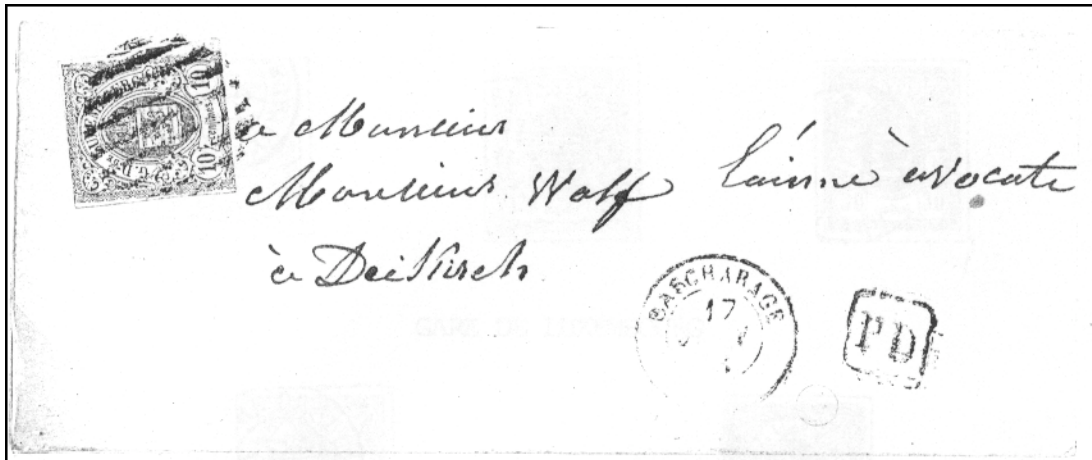 10 10
à Monsieur
Monsieur Wolf l'ainné avocate
à Deikirch
BASCHARAGE
17
PD